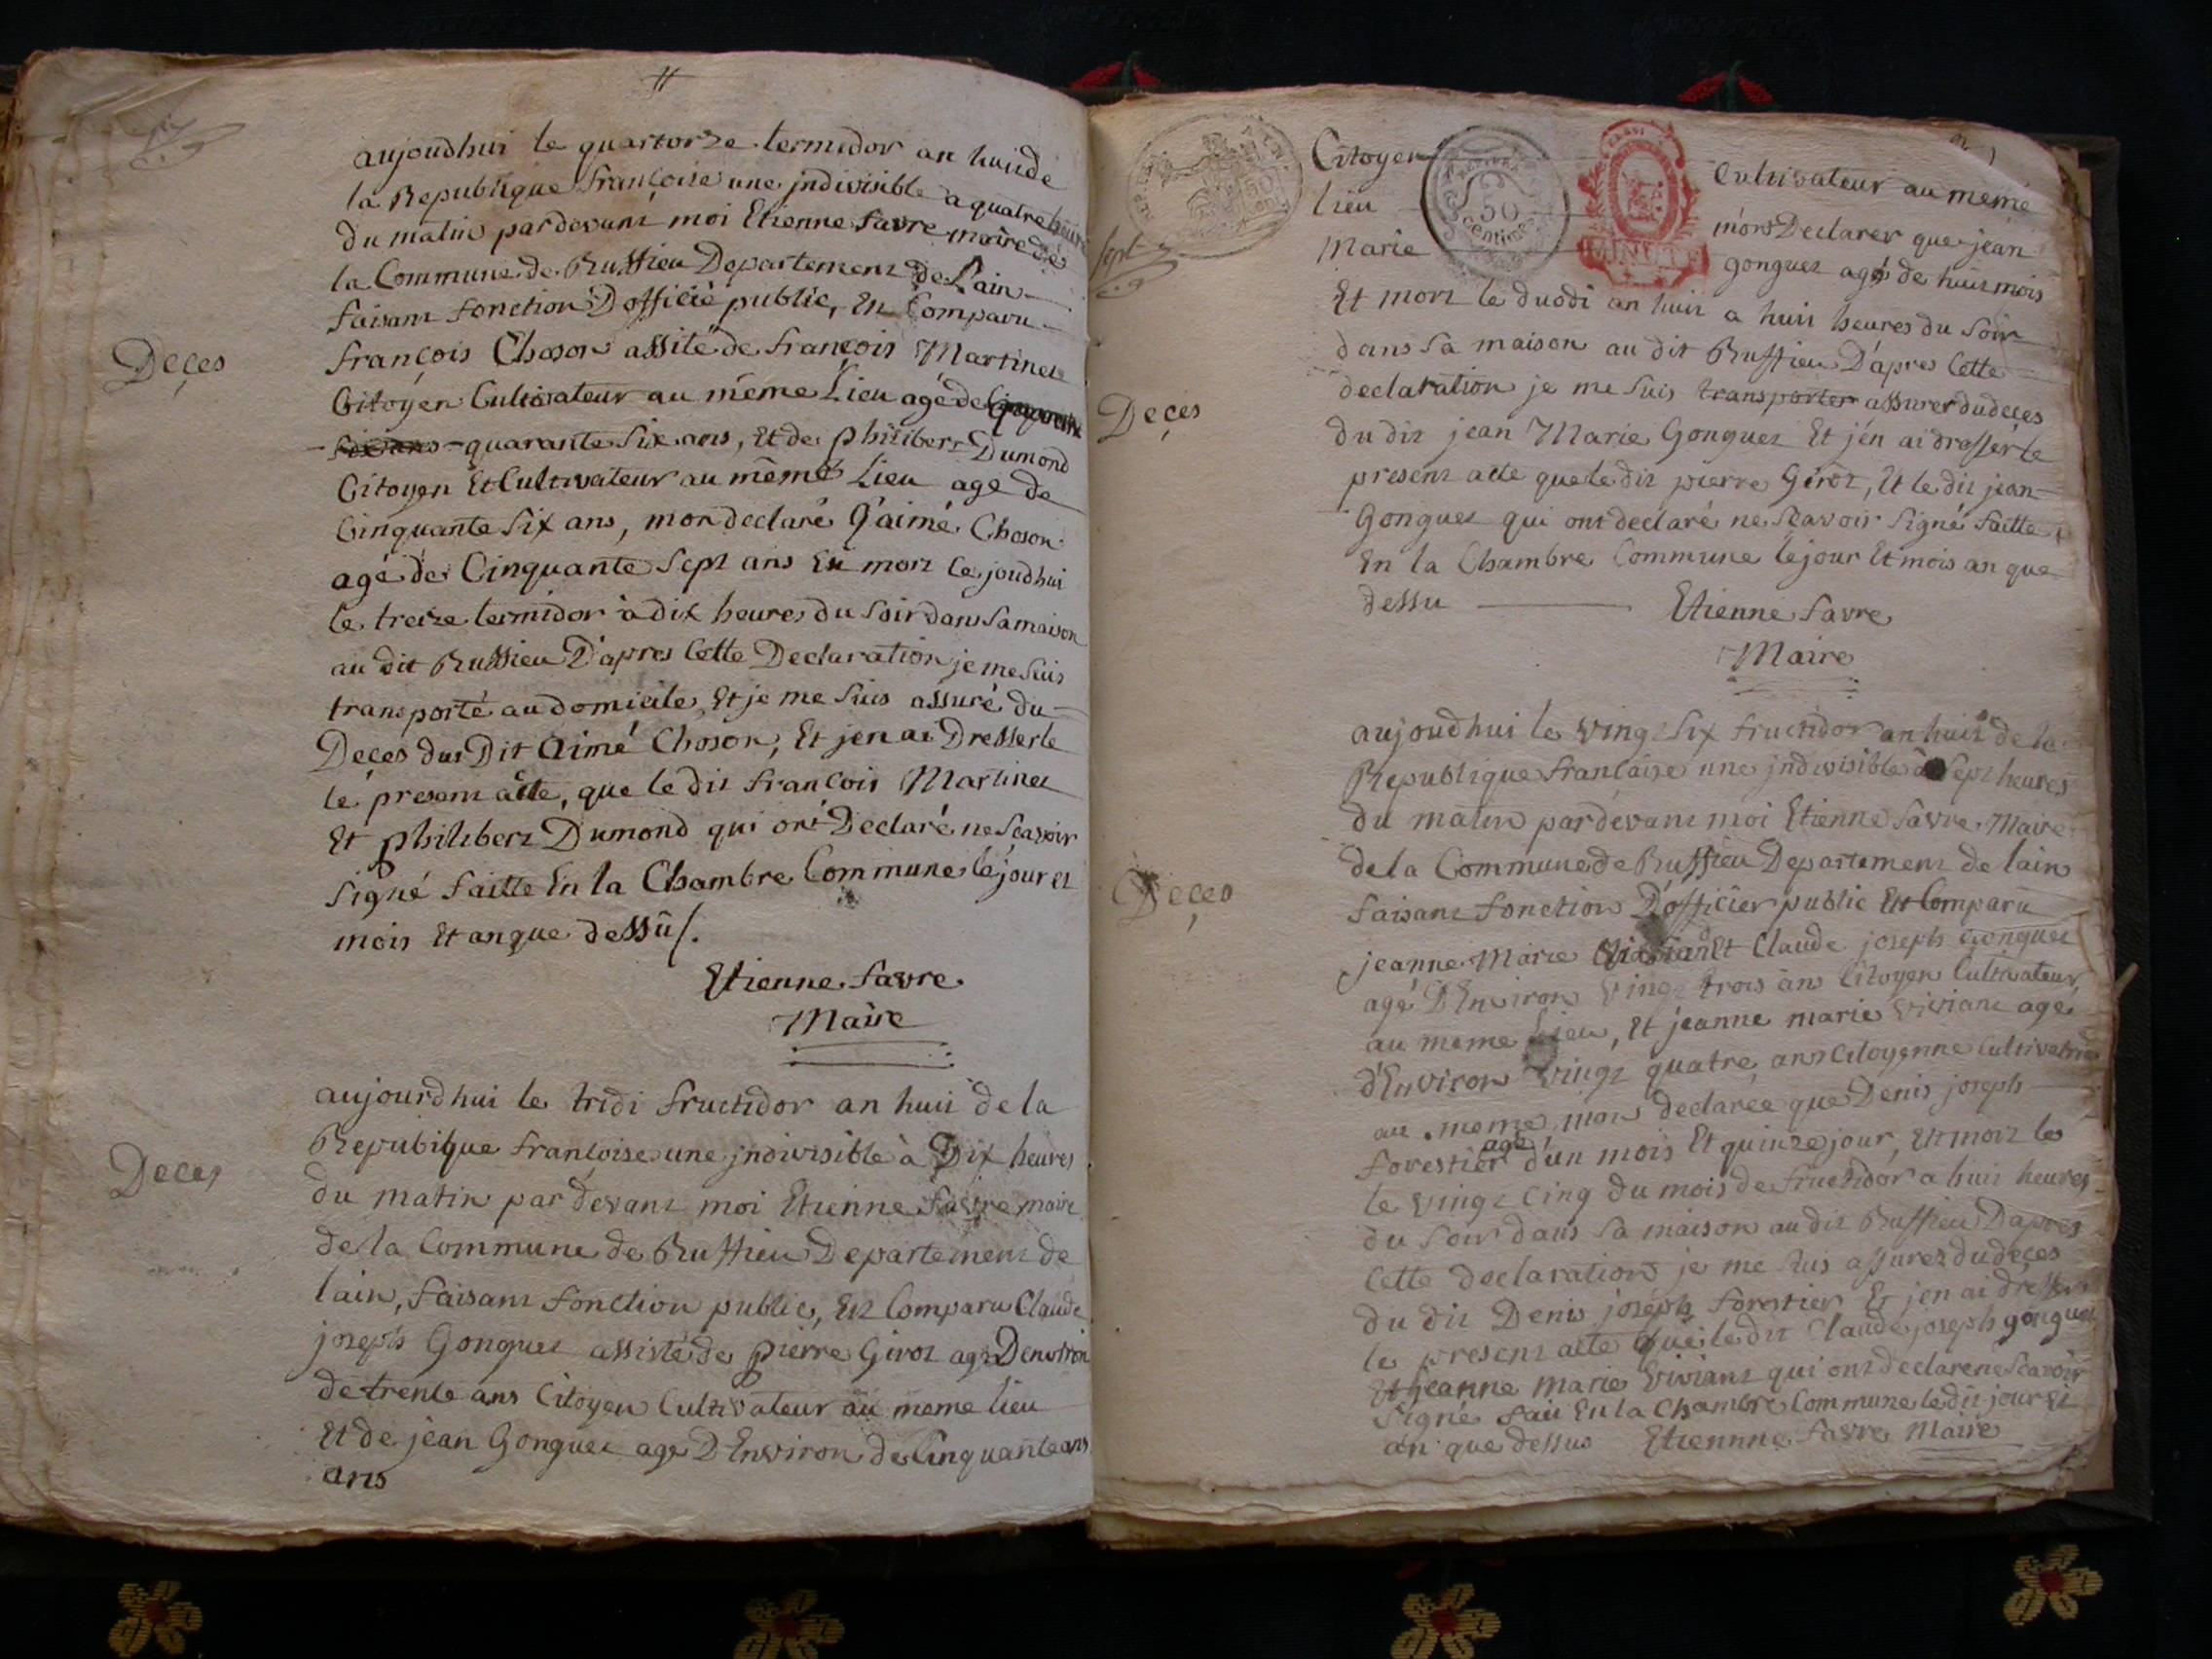 aujoudhui le quartorze termidor an huit de
la Republique françoise une jndivisible a quatre heures
du matin pardevant moi Etienne favre maire de
la Commune de Ruffieu Departement de Lain
faisant fonction Dofficié public, Est Comparu
françois Choson assité de françois Martinet
Deçes
Citoyen Cultivateur au même Lieu agé de
quarante six ans, Et de philibert Dumond
Citoyen Et Cultivateur au même Lieu age de
Cinquante Six ans, mon declaré Q'aimé Choson
agé de Cinquante Sept ans Est mort le joudhui
le treize termidor à dix heures du Soir dans Sa maison
au dit Ruffieu D'apres Cette Declaration je me Suis
transporté au domicile, Et je me Suis assuré du
Deces du Dit Aimé Choson, Et jen ai Dresser le
le present acte, que le dit françois Martinet
Et philibert Dumond qui ont Declaré ne Scavoir
Signé faitte En la Chambre Commune le jour et
mois Et an que dessû/.
Etienne favre
Maire
aujourdhui le tridi fructidor an huit de la
Repubique françoise une jndivisible à Dix heures
Deces
du matin par devant moi Etienne favre maire
de la Commune de Ruffieu Departement de
lain, faisant fonction public, Est Comparu Claude
joseph Gonguet assisté de pierre Girot agé Denviron
de trente ans Citoyen Cultivateur au meme lieu
Et de jean Gonguet age D'Environ de Cinquante ans
ans
Citoyen Cultivateur au meme
lieu mont Declarer que jean
Marie gonguet agé de huit mois
Sept
50 Centimes
MINUTE
Et mort le duodi an huit a huit heures du Soir
dans Sa maison au dit Ruffieu D'apres Cette
declaration je me Suis transporter assurer du deces
Deçes
du dit jean Marie Gonguet Et j'en ai drosser le
present acte que le dit pierre Girot, Et le dit jean
Gonguet qui ont declaré ne Scavoir Signé faitte
En la Chambre Commune le jour Et mois an que
dessu Etienne favre
Maire
aujoudhui le vingt Six fructidor an huit de la
Republique francaise une jndivisible à Sept heures
du matin pardevant moi Etienne favre Maire
de la Commune de Ruffieu Departement de lain
Deçes
faisant fonction D'officier public Est Comparu
jeanne Marie Et Claude joseph Gonguet
agé D'Environ Vingt trois ans Citoyen Cultivateur
au meme Lieu, Et jeanne marie Viviant agé
d'Environ Vingt quatre ans Citoyenne Cultivatrice
au meme mont declarée que Denis joseph
forestier agé d'un mois Et quinze jour, Est mort le
le vingt Cinq du mois de fructidor a huit heures
du Soir dans Sa maison au dit Ruffieu D'apres
Cette declaration je me Suis assurez du deces
du dit Denis joseph forestier Et jen ai dresser
le present acte que le dit Claude joseph gonguet
Et jeanne marie Viviant qui ont declare ne Scavoir
Signé fait En la Chambre Commune le dit jour Et
an que dessus Etiennne favre Maire